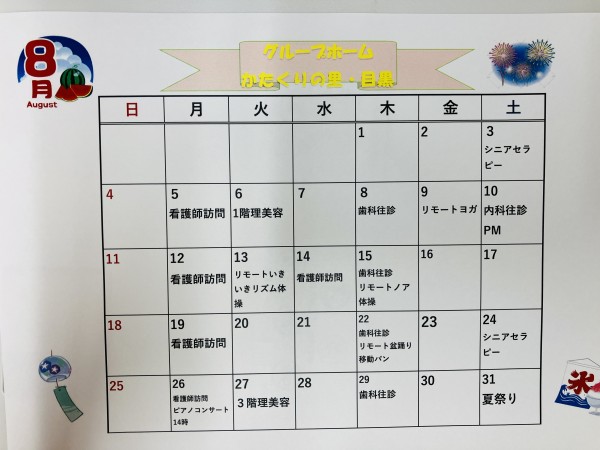 8
月
August
グループホーム
かたくりの里・目黒
日 月 火 水 木 金 土
1 2 3
シニアセラ
ピー
4 5 6 7 8 9 10
看護師訪問 1階理美容 歯科往診 リモートヨガ 内科往診
PM
11 12 13 14 15 16 17
看護師訪問 リモートいき 看護師訪問 歯科往診
いきリズム体 リモートノア
操 体操
18 19 20 21 22 23 24
看護師訪問 歯科往診 シニアセラ
リモート盆踊り ピー
移動パン
25 26 27 28 29 30 31
看護師訪問 3階理美容 歯科往診 夏祭り
ピアノコンサート
14時
氷